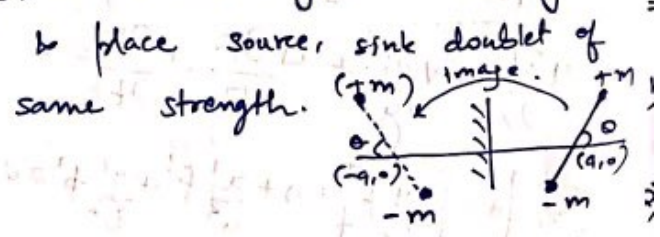 to place source, sink doublet of
same strength.
image.
(+m)
+m
θ
θ
(-a,0)
(a,0)
-m
-m